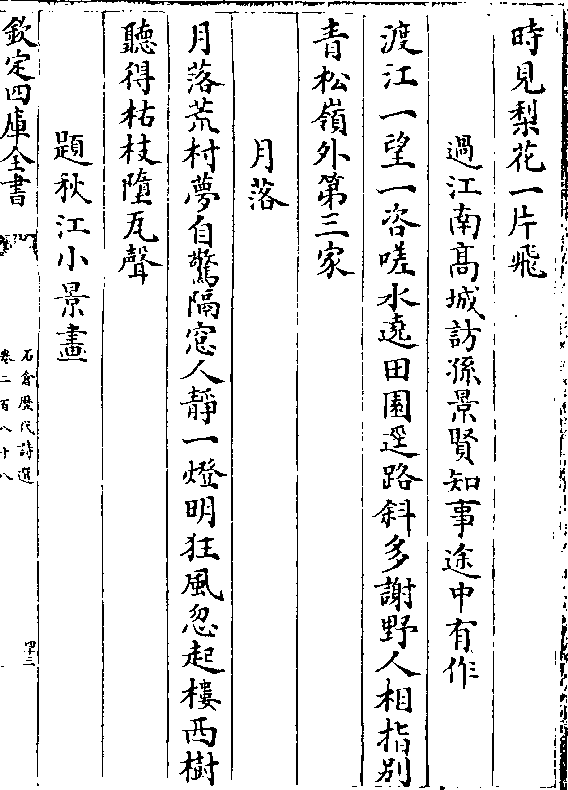 時見梨花一片飛
過江南髙城訪孫景賢知事途中有作
渡江一望一咨嗟水遶田園逕路斜多謝野人相指别
青松嶺外第三家
月落
月落荒村夢自驚隔窓人靜一燈明狂風忽起樓西樹
聽得枯枝墮瓦聲
題秋江小景畫
欽定四庫全書
石倉歴代詩選
卷二百八十八